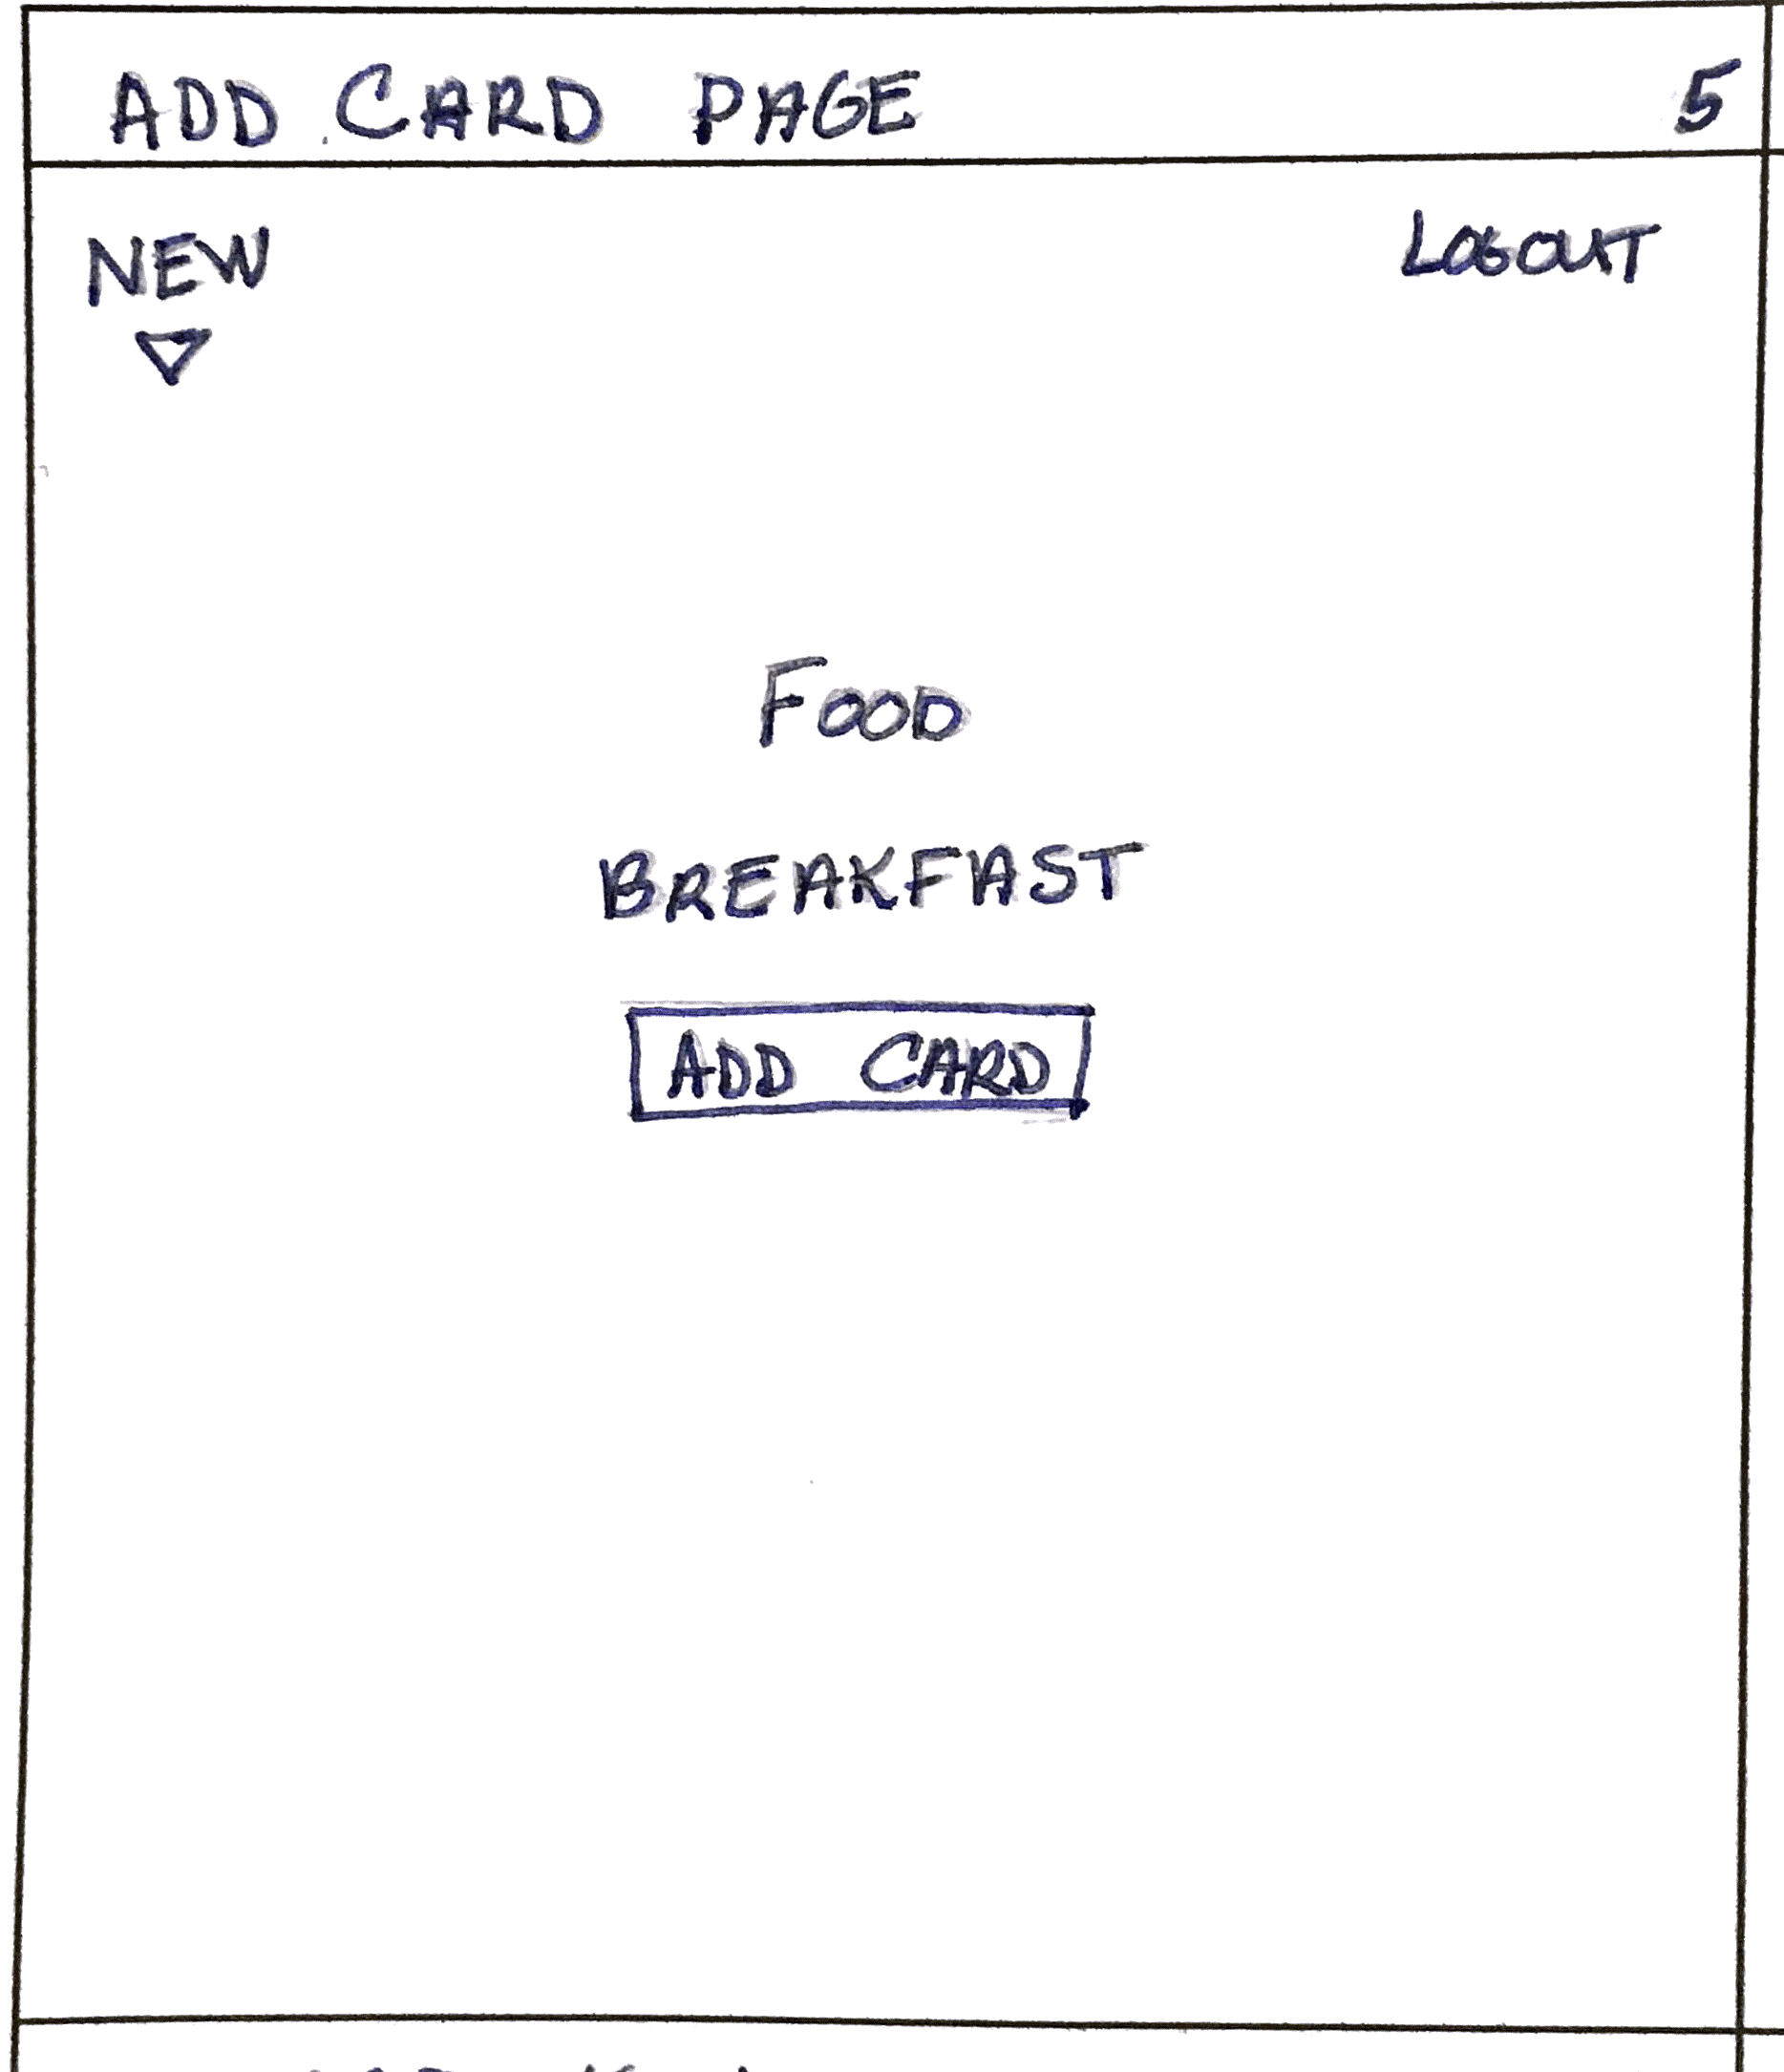 ADD CARD PAGE 5
NEW LOGOUT
FOOD
BREAKFAST
ADD CARD